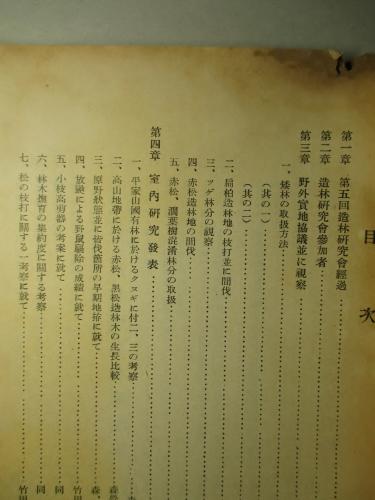 目次
第一章 第五回造林研究會經過
第二章 造林研究會參加者
第三章 野外實地協議並に視察
一、矮林の取扱方法
（其の一）
（其の二）
二、扁柏造林地の枝打並に間伐
三、ツゲ林分の視察
四、赤松造林地の間伐
五、赤松、濶葉樹混淆林分の取扱
第四章 室內研究發表
一、平家山國有林に於けるクヌギに付二、三の考察
二、高山地帶に於ける赤松、黑松造林木の生長比較 森
三、原野狀態並に皆伐箇所の早期地拵に就て 森
四、放飼による野鼠驅除の成績に就て 竹
五、小枝高剪器の考案に就て 同
六、林木撫育の集約度に關する考察 同
七、松の枝打に關する一考察に就て 竹